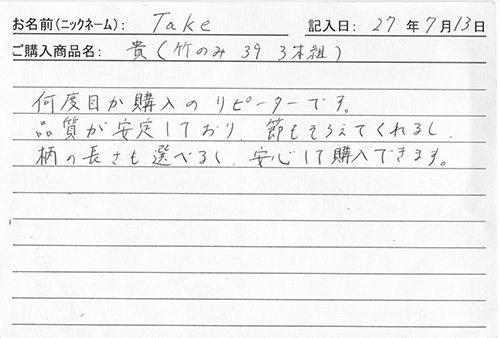 お名前(ニックネーム): Take 記入日: 27年7月13日
ご購入商品名: 貴(竹のみ 39 3本組)
何度目か購入のリピーターです。
品質が安定しており、節もそろえてくれるし、
柄の長さも選べるし、安心して購入できます。